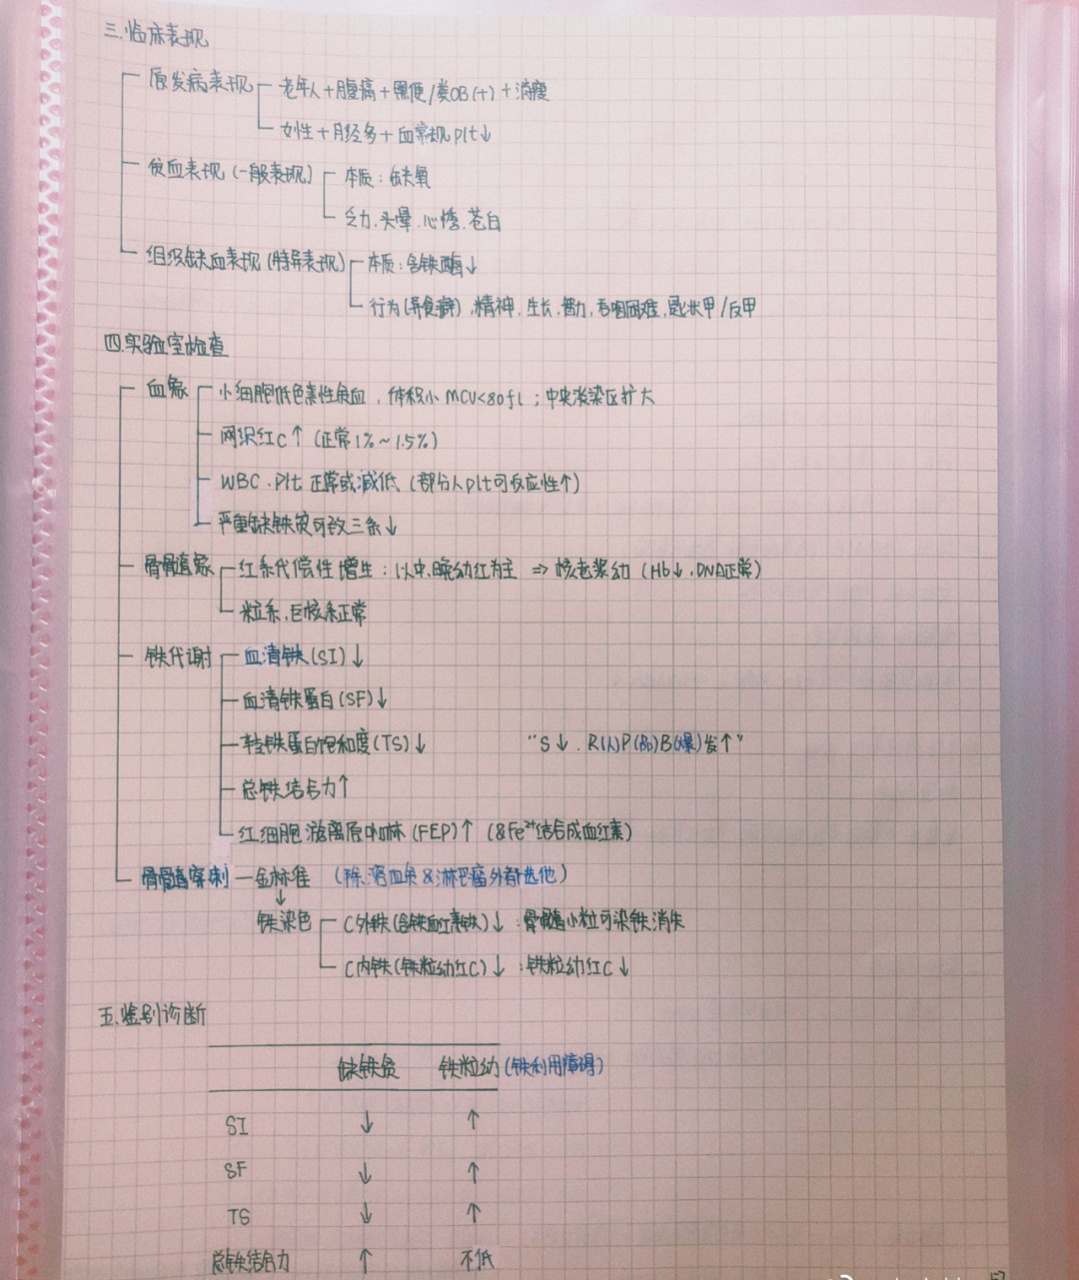 三.临床表现
原发病表现 老年人+腹痛+黑便/粪OB(+)+消瘦
女性+月经多+血常规plt↓
贫血表现(一般表现) 本质:缺氧
乏力.头晕.心悸.苍白
组织缺血表现(特异表现) 本质:含铁酶↓
行为(异食癖).精神.生长.智力,吞咽困难,匙状甲/反甲
四.实验室检查
血象 小细胞低色素性贫血,体积小MCV<80fl;中央淡染区扩大
网织红C↑(正常1%~1.5%)
WBC.Plt 正常或减低(部分人plt可反应性↑)
严重缺铁贫可致三系↓
骨髓象 红系代偿性增生:以中.晚幼红为主 ⇒ 核老浆幼(Hb↓.DNA正常)
粒系.巨核系正常
铁代谢 血清铁(SI)↓
血清铁蛋白(SF)↓
转铁蛋白饱和度(TS)↓ "S↓.R(人)P(Bo)B(爆)发↑"
总铁结合力↑
红细胞游离原卟啉(FEP)↑(&Fe²⁺结合成血红素)
骨髓穿刺—金标准(除.溶血贫&淋巴瘤外都选他)
↓
铁染色 C外铁(含铁血红素铁)↓:骨髓小粒可染铁消失
C内铁(铁粒幼红C)↓:铁粒幼红C↓
五.鉴别诊断
缺铁贫 铁粒幼(铁利用障碍)
SI ↓ ↑
SF ↓ ↑
TS ↓ ↑
总铁结合力 ↑ 不低